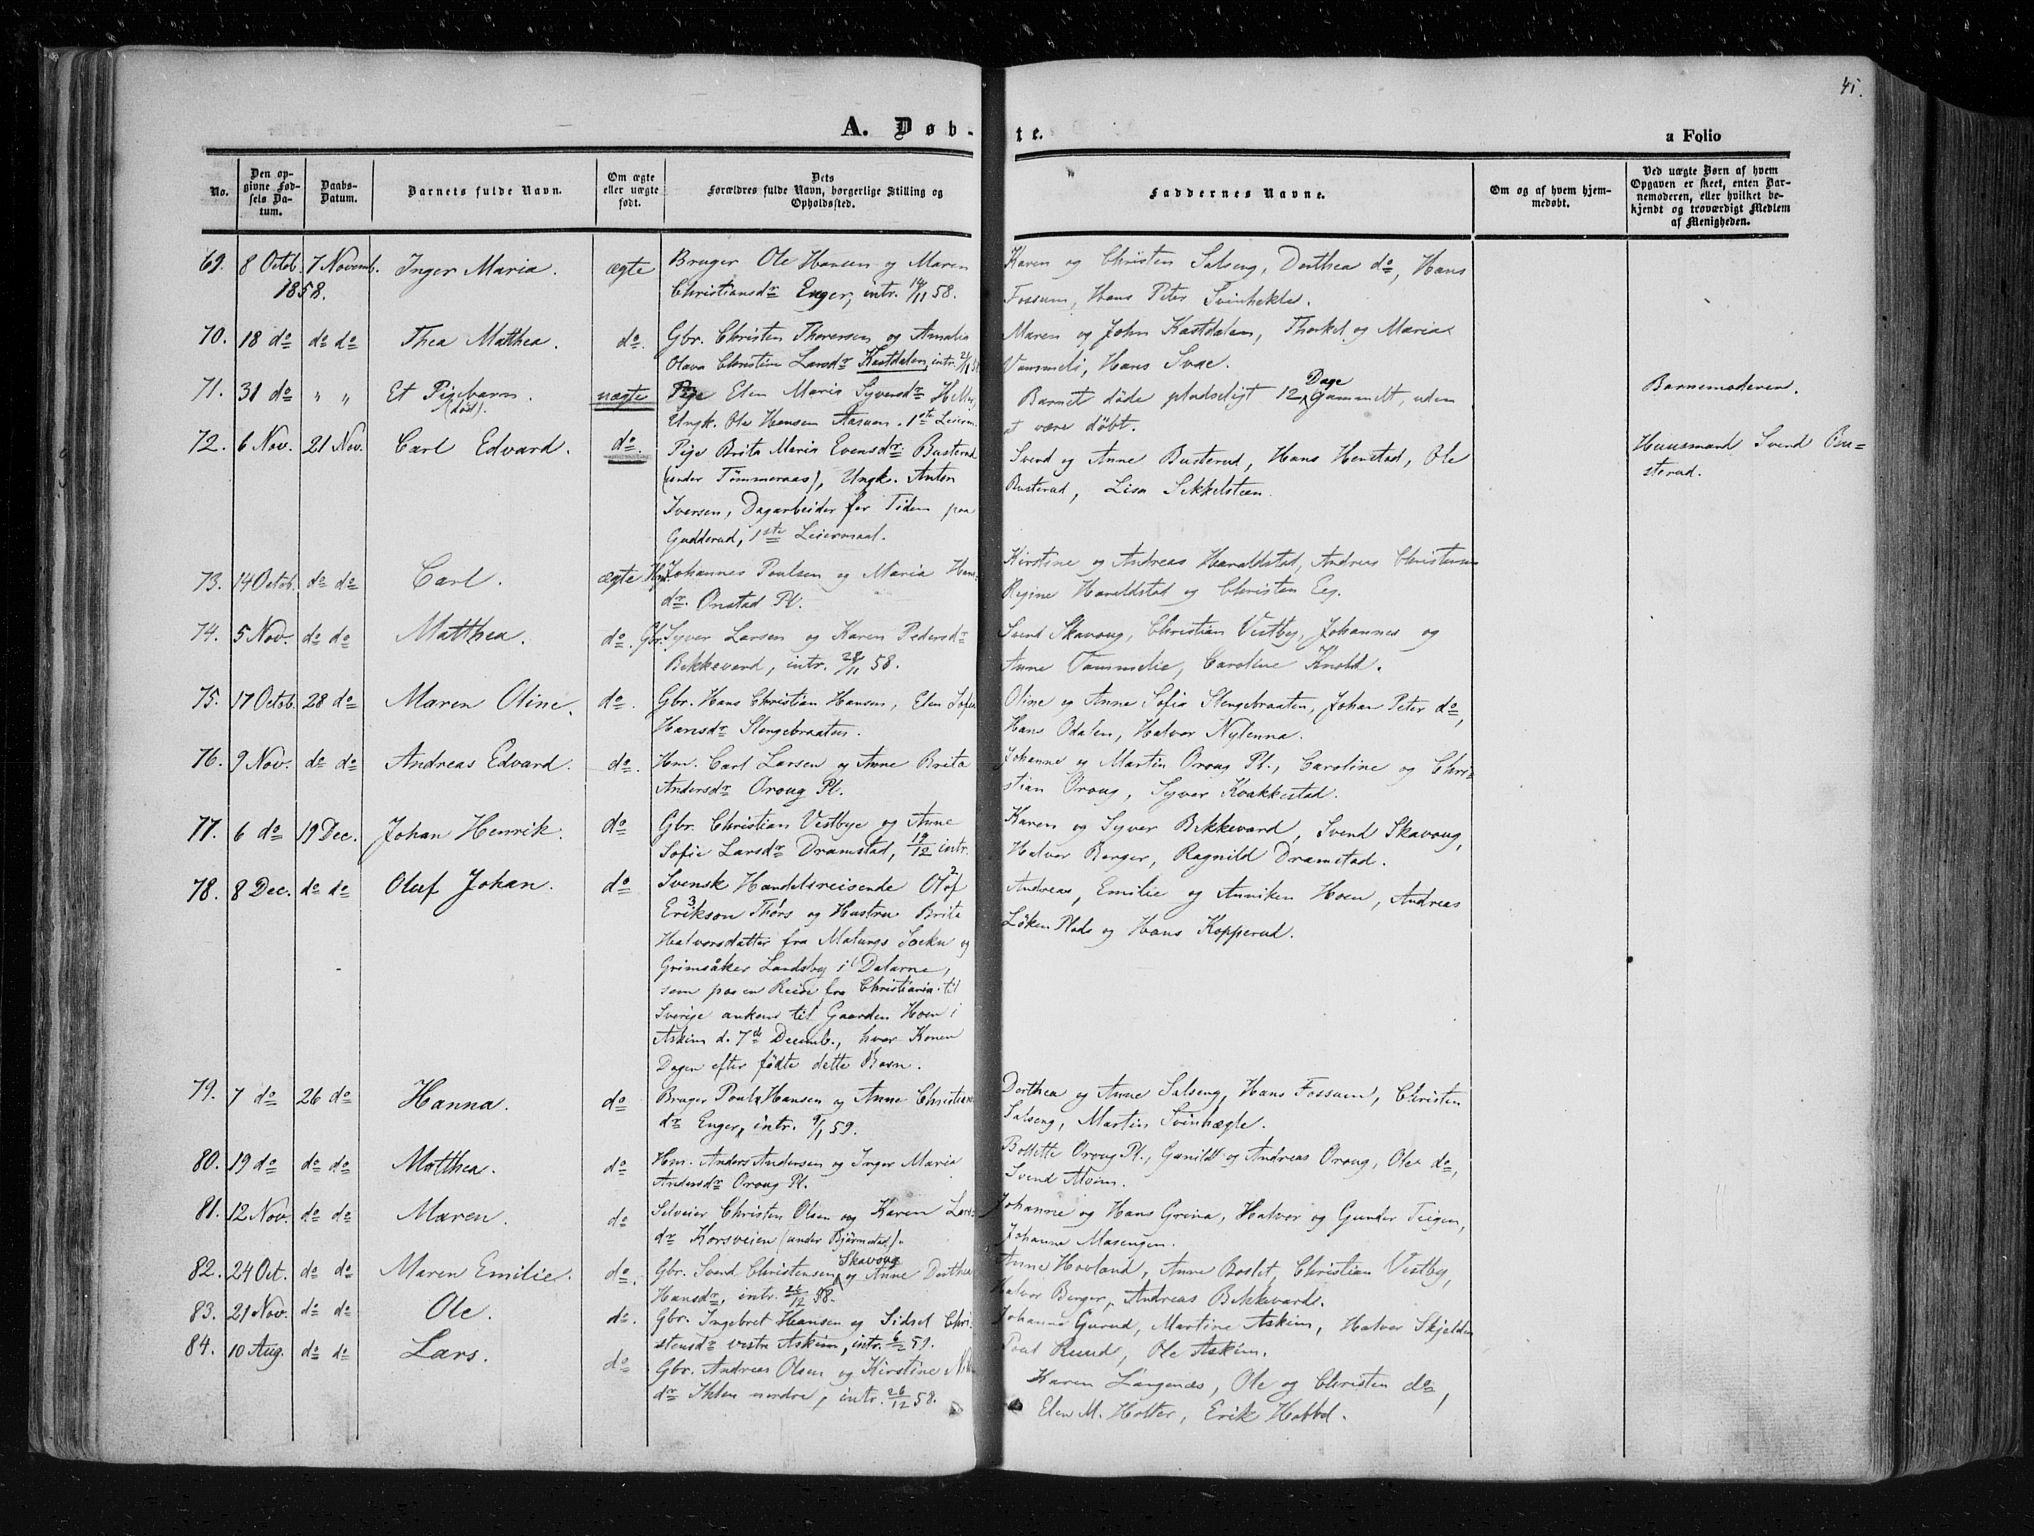 45.
A. Døbte.
a Folio
No.
Den opgivne Fødsels Datum.
Daabs-Datum.
Barnets fulde Navn.
Om ægte eller uægte født.
Dets Forældres fulde Navn, borgerlige Stilling og Opholdssted.
Faddernes Navne.
Om og af hvem hjemmedøbt.
Ved uægte Børn af hvem Opgaven er skeet, enten Barnemoderen, eller hvilket bekjendt og troværdigt Medlem af Menigheden.
69. 8 Octob. 1858. 7 Novemb. Inger Maria. ægte
Bruger Ole Hansen og Maren
Christiansdr Enger, intr. 14/11 58.
Karen og Christen Salseng, Dorthea do, Hans
Fossum, Hans Peter Svinhekle.
70. 18 do do do Thea Matthea. do.
Gbr. Christen Thoresen og Amalia
Olava Christine Larsdr Kastdalen, intr.
Maren og John Kastdalen, Thorkel og Maria
Vammeli, Hans Svae.
71. 31 do " " Et Pigebarn. (død). uægte
Pige Elen Maria Syversdr
Ungk. Ole Hansen Aasuen. 1ste Leierm.
Barnet døde pludseligt 12 Dage Gammelt, uden
at være døbt.
Barnemoderen.
72. 6 Nov. 21 Nov. Carl Edvard. do.
Pige Brita Maria Evensdr. Busterud
(under Tømmeraas), Ungk. Anton
Iversen, Dagarbeider for Tiden paa
Gudderud, 1ste Leiermaal.
Svend og Anne Busterud, Hans Henstad, Ole
Busterud, Lisa Sekkelsteen.
Huusmand Svend Bu-
sterud.
73. 14 Octob. do do Carl. ægte
Hm. Johannes Poulsen og Maria Hans-
dr. Onstad Pl.
Kirstine og Andreas Haraldstad, Andreas Christensen
Regine Haraldstad og Christen Eeg.
74. 5 Nov. do do Matthea. do.
Gbr. Syver Larsen og Karen Pedersdr
Bekkevard, intr. 28/11 58.
Svend Skavoug, Christian Vestby, Johannes og
Anne Vammelie, Caroline Knold.
75. 17 Octob. 28 do Maren Oline. do.
Gbr. Hans Christian Hansen, Elen Sofie
Hansdr Slengebraaten.
Oline og Anna Sofia Slengebraaten, Johan Peter do,
Hans Odalen, Halvor Nylenna.
76. 9 Nov. do do Andreas Edvard. do.
Hm. Carl Larsen og Anne Brita
Andersdr Oroug Pl.
Johanne og Martin Oroug Pl., Caroline og Chri-
stian Oroug, Syver Kvakkestad.
77. 6 do 19 Dec. Johan Henrik. do
Gbr. Christian Vestbye og Anne
Sofie Larsdr Dramstad, 19/12 intr.
Karen og Syver Bekkevard, Svend Skavoug,
Halvor Berger, Ragnild Dramstad.
78. 8 Dec. do do Oluf Johan. do
Svensk Handelsreisende Olof 2
3 Erikson 1 Thørs og Hustru Brita
Halvorsdatter fra Malungs Sockn og
Grimsåker Landsby i Dalarne,
som paa en Reise fra Christiania til
Sverige ankom til Gaarden Hoen i
Askim d. 7de Decemb., hvor Konen
Dagen efter fødte dette Barn.
Andreas, Emilie og Anniken Hoen, Andreas
Löken Plads og Hans Kopperud.
79. 7 do 26 do Hanna. do
Bruger Poul Hansen og Anne Christians
dr Enger, intr. 9/1 59.
Dorthea og Anne Salseng, Hans Fossum, Christen
Salseng, Martin Svinhægle.
80. 19 do do do Matthea. do
Hm. Anders Andersen og Inger Maria
Andersdr Oroug Pl.
Bollette Oroug Pl., Gunild og Andreas Oroug, Ole do,
Svend Alvim.
81. 12 Nov. do do Maren. do
Selveier Christen Olsen og Karen Lars-
dr Korsveien (under Bjørnstad).
Johanne og Hans Grina, Halvor og Gunder Teigen,
Johanne Masengen.
82. 24 Oct. do do Maren Emilie. do.
Gbr. Svend Christensen Skavoug og Anne Dorthea
Hansdr, intr. 26/12 58.
Anne Hovland, Anne Boslet, Christian Vestby,
Halvor Berger, Andreas Bekkevard.
83. 21 Nov. do do Ole. do.
Gbr. Ingebret Hansen og Sidsel Chri-
stensdr vestre Askim, intr. 6/2 59.
Johanne Gurud, Martine Askim, Halvor Skjolden
Poul Ruud, Ole Askim.
84. 10 Aug. do do Lars. do
Gbr. Andreas Olsen og Kirstine
dr Ihlen nordre, intr. 26/12 58.
Karen Langenæs, Ole og Christen do,
Elen M. Holter, Erik Habbel.